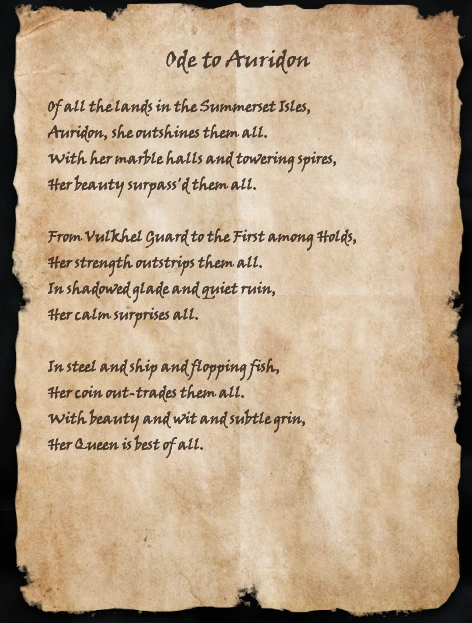 Ode to Auridon
Of all the lands in the Summerset Isles,
Auridon, she outshines them all.
With her marble halls and towering spires,
Her beauty surpass'd them all.
From Vulkhel Guard to the First among Holds,
Her strength outstrips them all.
In shadowed glade and quiet ruin,
Her calm surprises all.
In steel and ship and flopping fish,
Her coin out-trades them all.
With beauty and wit and subtle grin,
Her Queen is best of all.